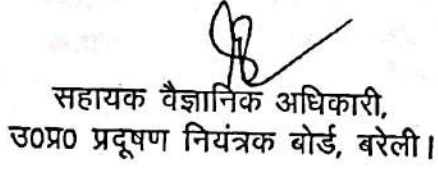 सहायक वैज्ञानिक अधिकारी,
उ०प्र० प्रदूषण नियंत्रक बोर्ड, बरेली।